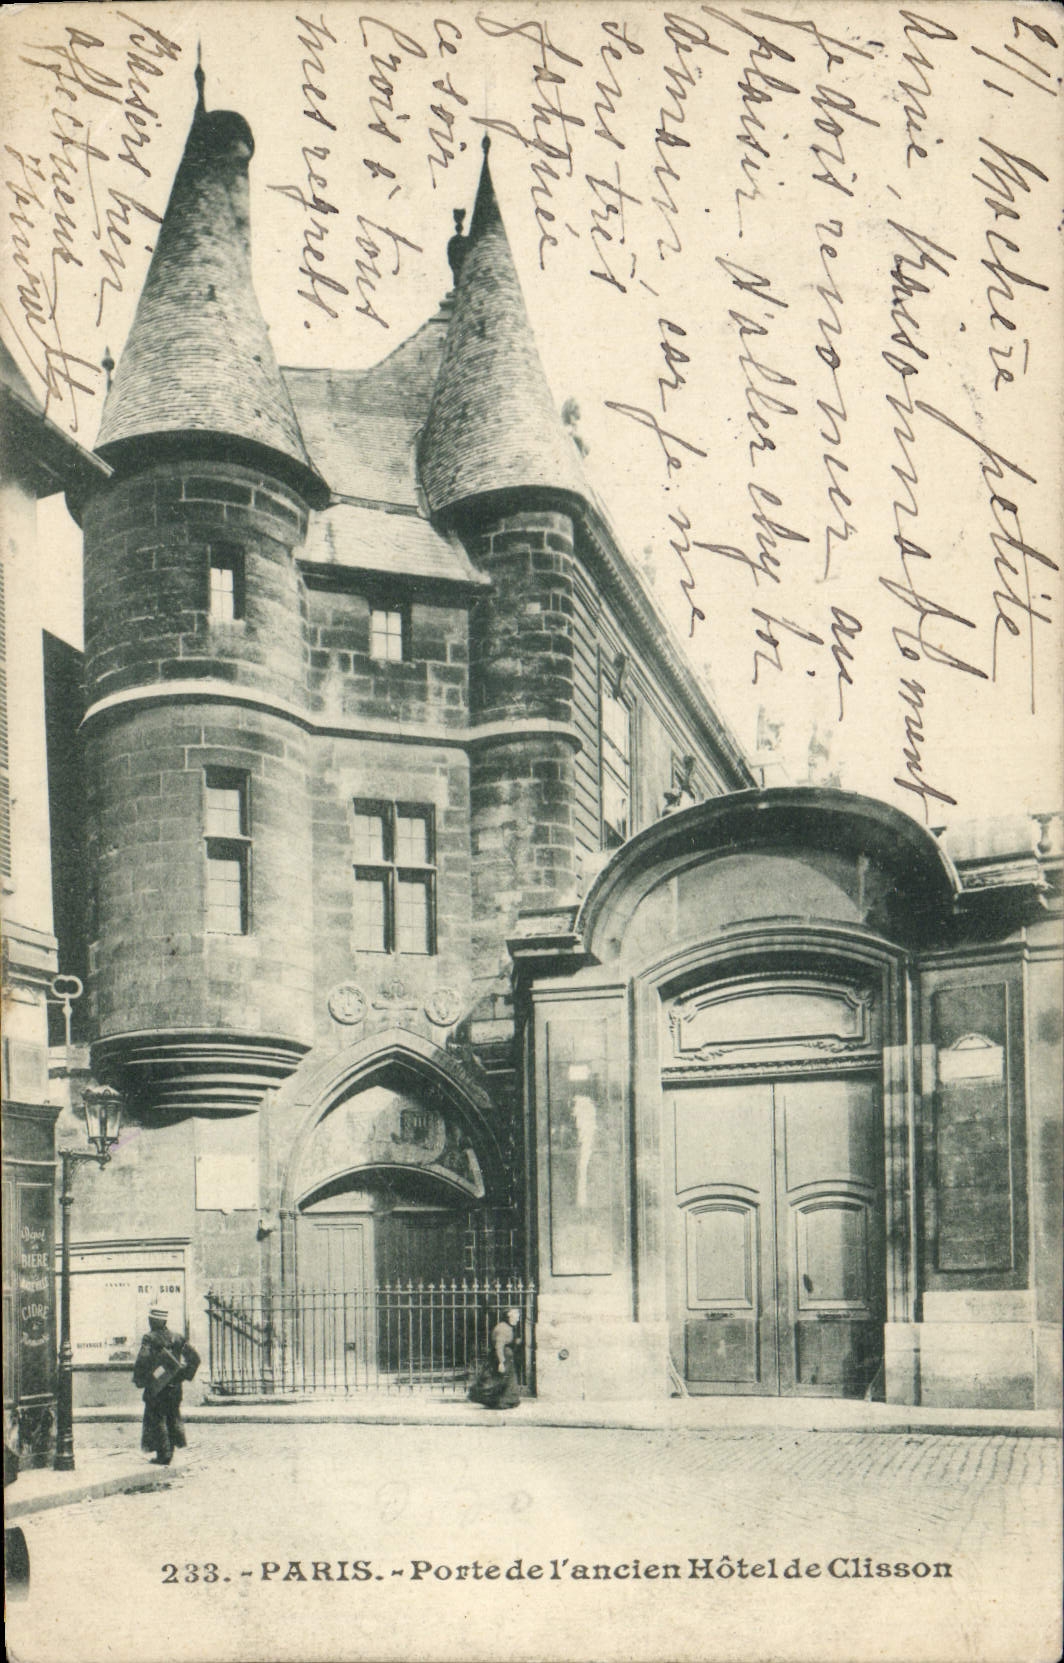 21/1 Ma chère petite
amie, Raisonnablement
je dois renoncer au
plaisir d'aller chez toi
demain, car je me
sens très
fatiguée
ce soir
Crois à tous
mes regrets.
Baisers bien
affectueux
Dépôt
de
BIÈRE
CIDRE
233. - PARIS. - Porte de l'ancien Hôtel de Clisson